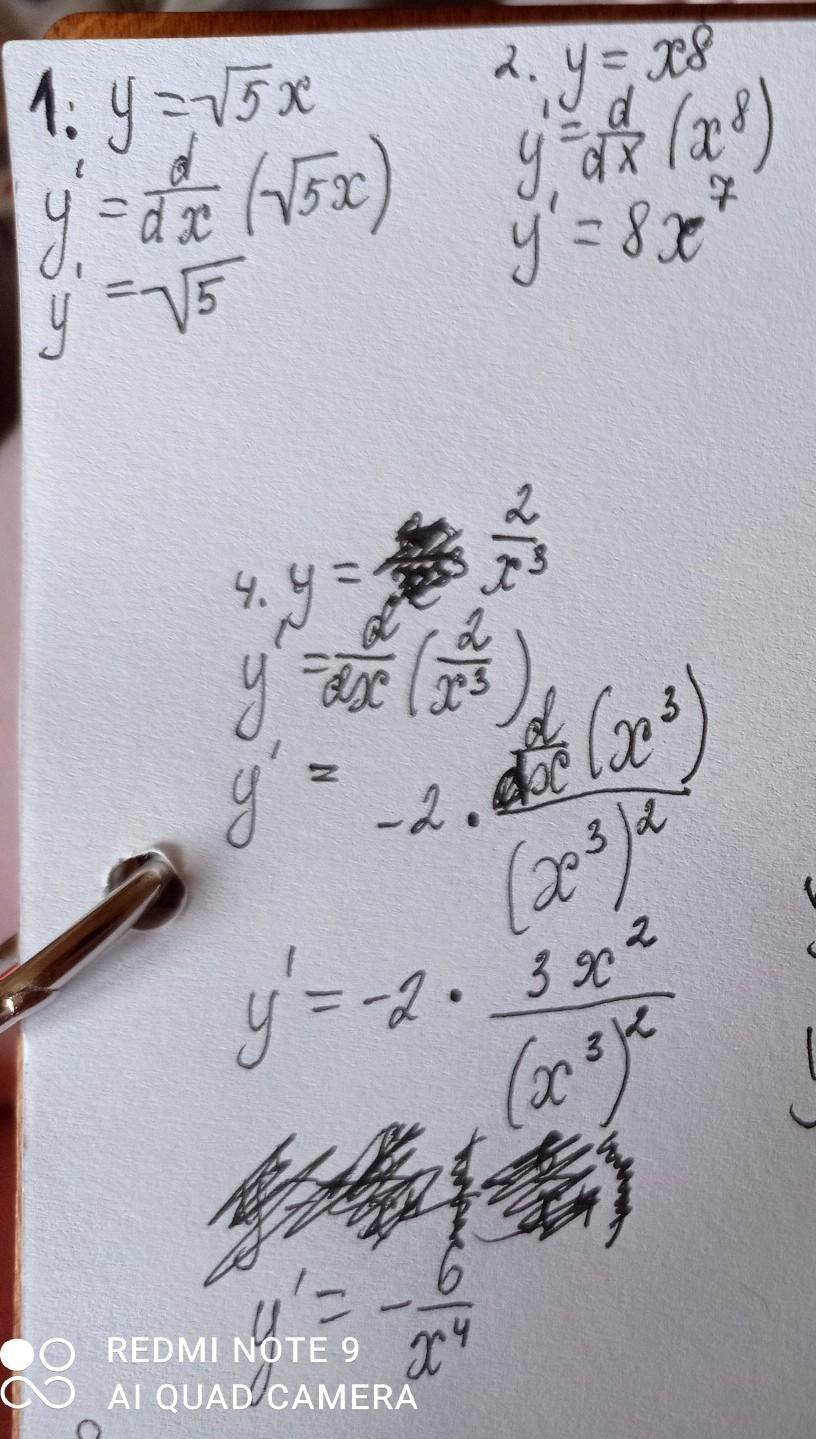 1: y = √5x
y' = d/dx (√5x)
y' = √5
2. y = x8
y' = d/dx (x⁸)
y' = 8x⁷
4. y = 2/x³
y' = d/dx (2/x³)
y' = -2 · d/dx (x³) / (x³)²
y' = -2 · 3x² / (x³)²
y' = - 6/x⁴
REDMI NOTE 9
AI QUAD CAMERA